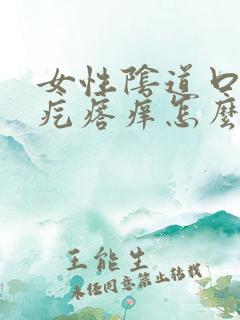 女性陰道口
疙瘩痒怎麼
王能生
未经同意禁止转载